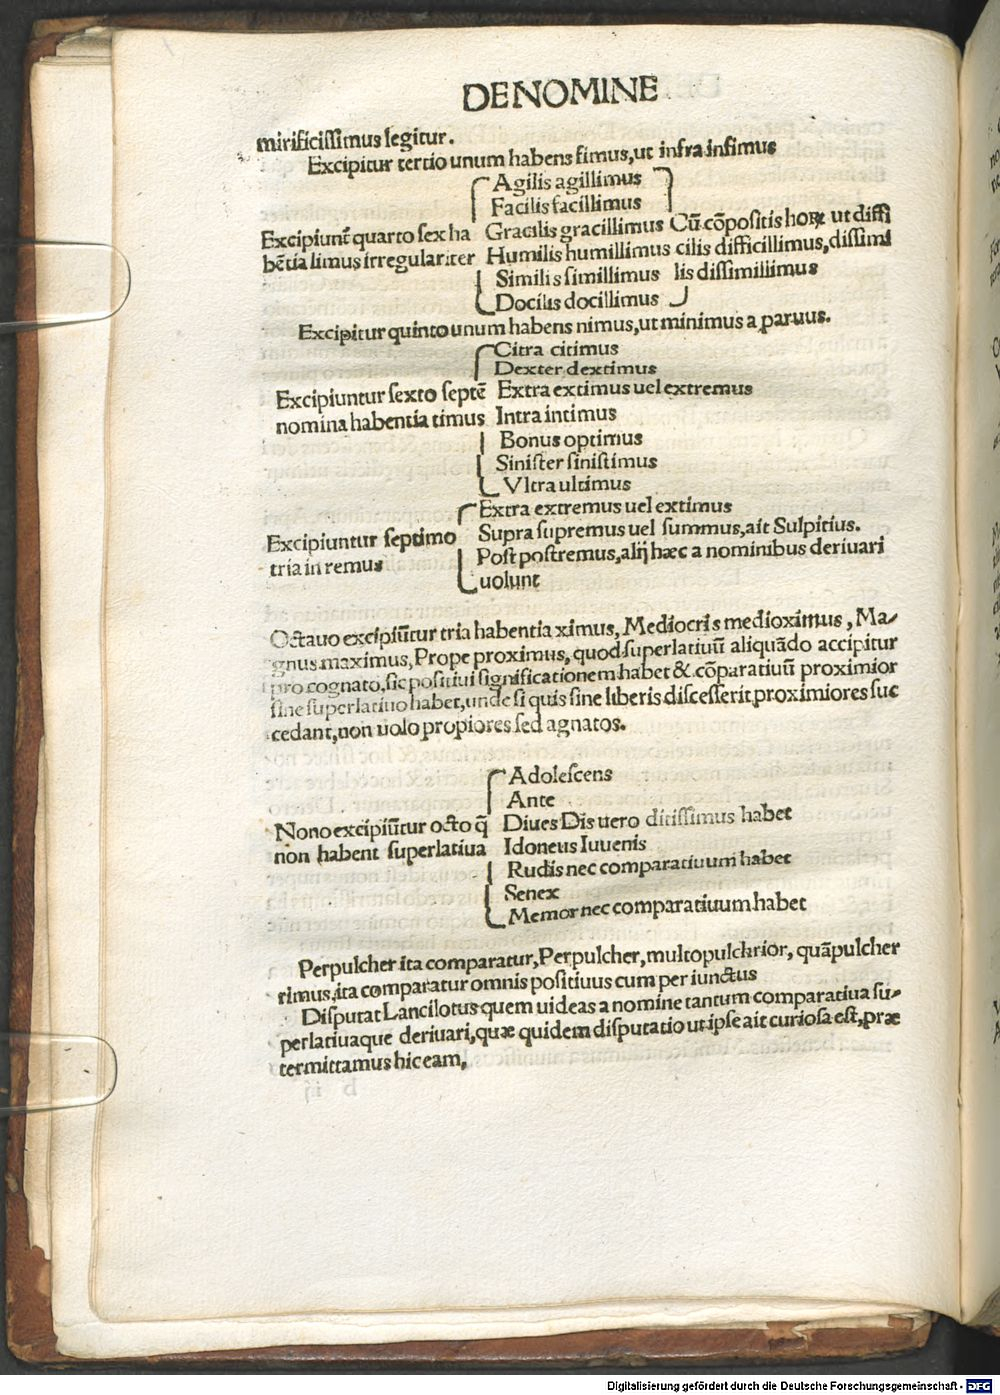 DE NOMINE
mirificissimus legitur.
Excipitur tertio unum habens fimus, ut infra infimus
Agilis agillimus
Facilis facillimus
Excipiunt̃ quarto sex ha Gracilis gracillimus Cũ cõpositis hoꝝ ut diffi
bẽtia limus irregulariter Humilis humillimus cilis difficillimus, dissimi
Similis simillimus lis dissimillimus
Docilis docillimus
Excipitur quinto unum habens nimus, ut minimus a paruus.
Citra citimus
Dexter dextimus
Excipiuntur sexto septẽ Extra extimus uel extremus
nomina habentia timus Intra intimus
Bonus optimus
Sinister sinistimus
Vltra ultimus
Extra extremus uel extimus
Excipiuntur septimo Supra supremus uel summus, ait Sulpitius.
tria in remus Post postremus, alij hæc a nominibus deriuari
uolunt
Octauo excipiũtur tria habentia ximus, Mediocris medioximus, Ma-
gnus maximus, Prope proximus, quod superlatiuũ aliquãdo accipitur
pro cognato, sic positiui significationem habet & cõparatiuũ proximior
sine superlatiuo habet, unde si quis sine liberis discesserit proximiores suc
cedant, non uolo propiores sed agnatos.
Adolescens
Ante
Nono excipiũtur octo q̃ Diues Dis uero ditissimus habet
non habent superlatiua Idoneus Iuuenis
Rudis nec comparatiuum habet
Senex
Memor nec comparatiuum habet
Perpulcher ita comparatur, Perpulcher, multo pulchrior, quã pulcher
rimus, ita comparatur omnis positiuus cum per iunctus
Disputat Lancilotus quem uideas a nomine tantum comparatiua su-
perlatiuaque deriuari, quæ quidem disputatio ut ipse ait curiosa est, præ
termittamus hic eam,
Digitalisierung gefördert durch die Deutsche Forschungsgemeinschaft - DFG